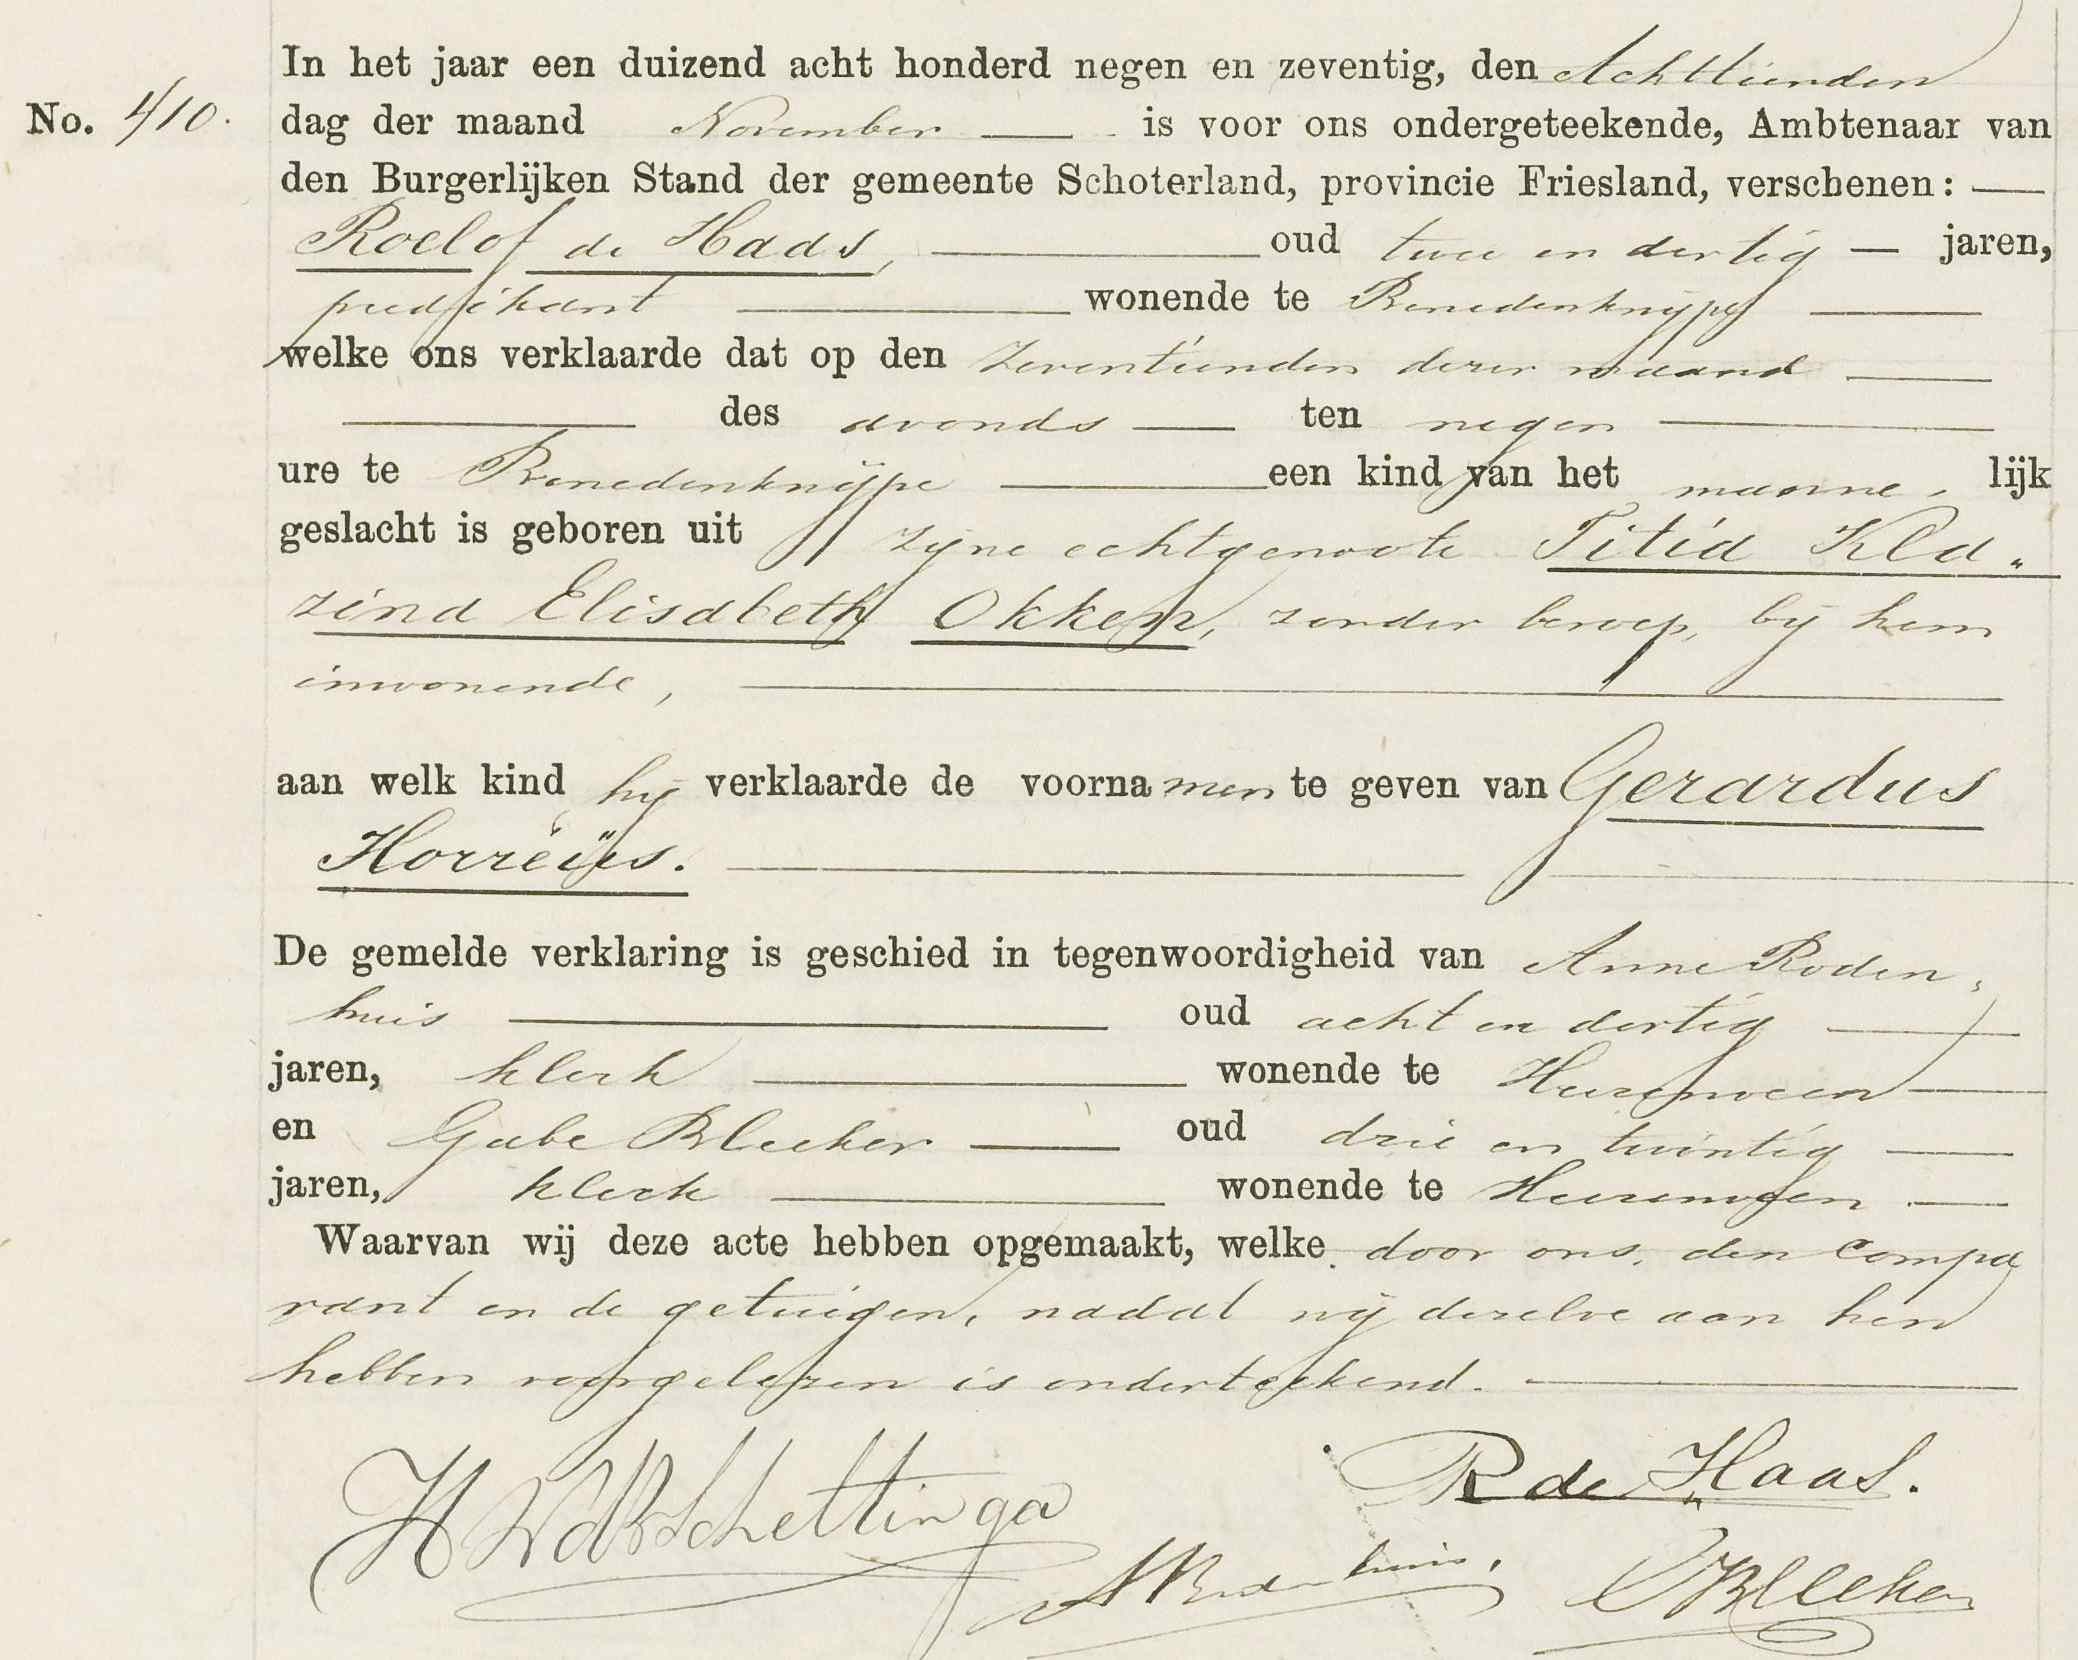 In het jaar een duizend acht honderd negen en zeventig, den Achttienden
No. 410. dag der maand November is voor ons ondergeteekende, Ambtenaar van
den Burgerlijken Stand der gemeente Schoterland, provincie Friesland, verschenen:
Roelof de Haas, oud twee en dertig jaren,
predikant wonende te Benedenknijpe
welke ons verklaarde dat op den zeventienden dezer maand
des avonds ten negen
ure te Benedenknijpe een kind van het manne lijk
geslacht is geboren uit zijne echtgenoote Titia Kla„
zina Elisabeth Okken, zonder beroep, bij hem
inwonende,
aan welk kind hij verklaarde de voorna men te geven van Gerardus
Horreüs.
De gemelde verklaring is geschied in tegenwoordigheid van Anne Roden„
huis oud acht en dertig
jaren, klerk wonende te Heerenveen
en Gabe Bleeker oud drie en twintig
jaren, klerk wonende te Heerenveen
Waarvan wij deze acte hebben opgemaakt, welke door ons, den compa
rant en de getuigen, nadat wij dezelve aan hen
hebben voorgelezen is onderteekend.
R de Haas.
ARodenhuis. GBleeker